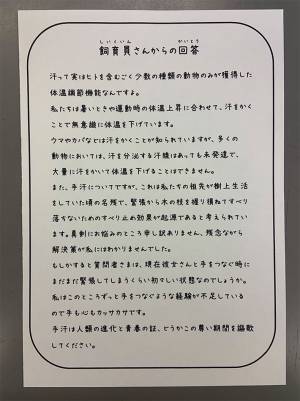 しいくいん かいとう
飼育員さんからの回答
汗って実はヒトを含むごく少数の種類の動物のみが獲得した
体温調節機能なんですよ。
私たちは暑いときや運動時の体温上昇に合わせて、汗をかく
ことで無意識に体温を下げています。
ウマやカバなどは汗をかくことが知られていますが、多くの
動物においては、汗を分泌する汗腺はあっても未発達で、
大量に汗をかいて体温を下げることはできません。
また、手汗についてですが、これは私たちの祖先が樹上生活
をしていた頃の名残で、緊張から木の枝を握り損ねてすべり
落ちないためのすべり止め効果が起源であると考えられてい
ます。真剣にお悩みのところ申し訳ありません、残念ながら
解決策が私にはわかりませんでした。
もしかすると質問者さまは、現在彼女さんと手をつなぐ時に
まだまだ緊張してしまうくらい初々しい状態なのでしょうか。
私はここのところずっと手をつなぐような経験が不足している
ので手も心もカッサカサです。
手汗は人類の進化と青春の証、どうかこの尊い期間を謳歌
してください。